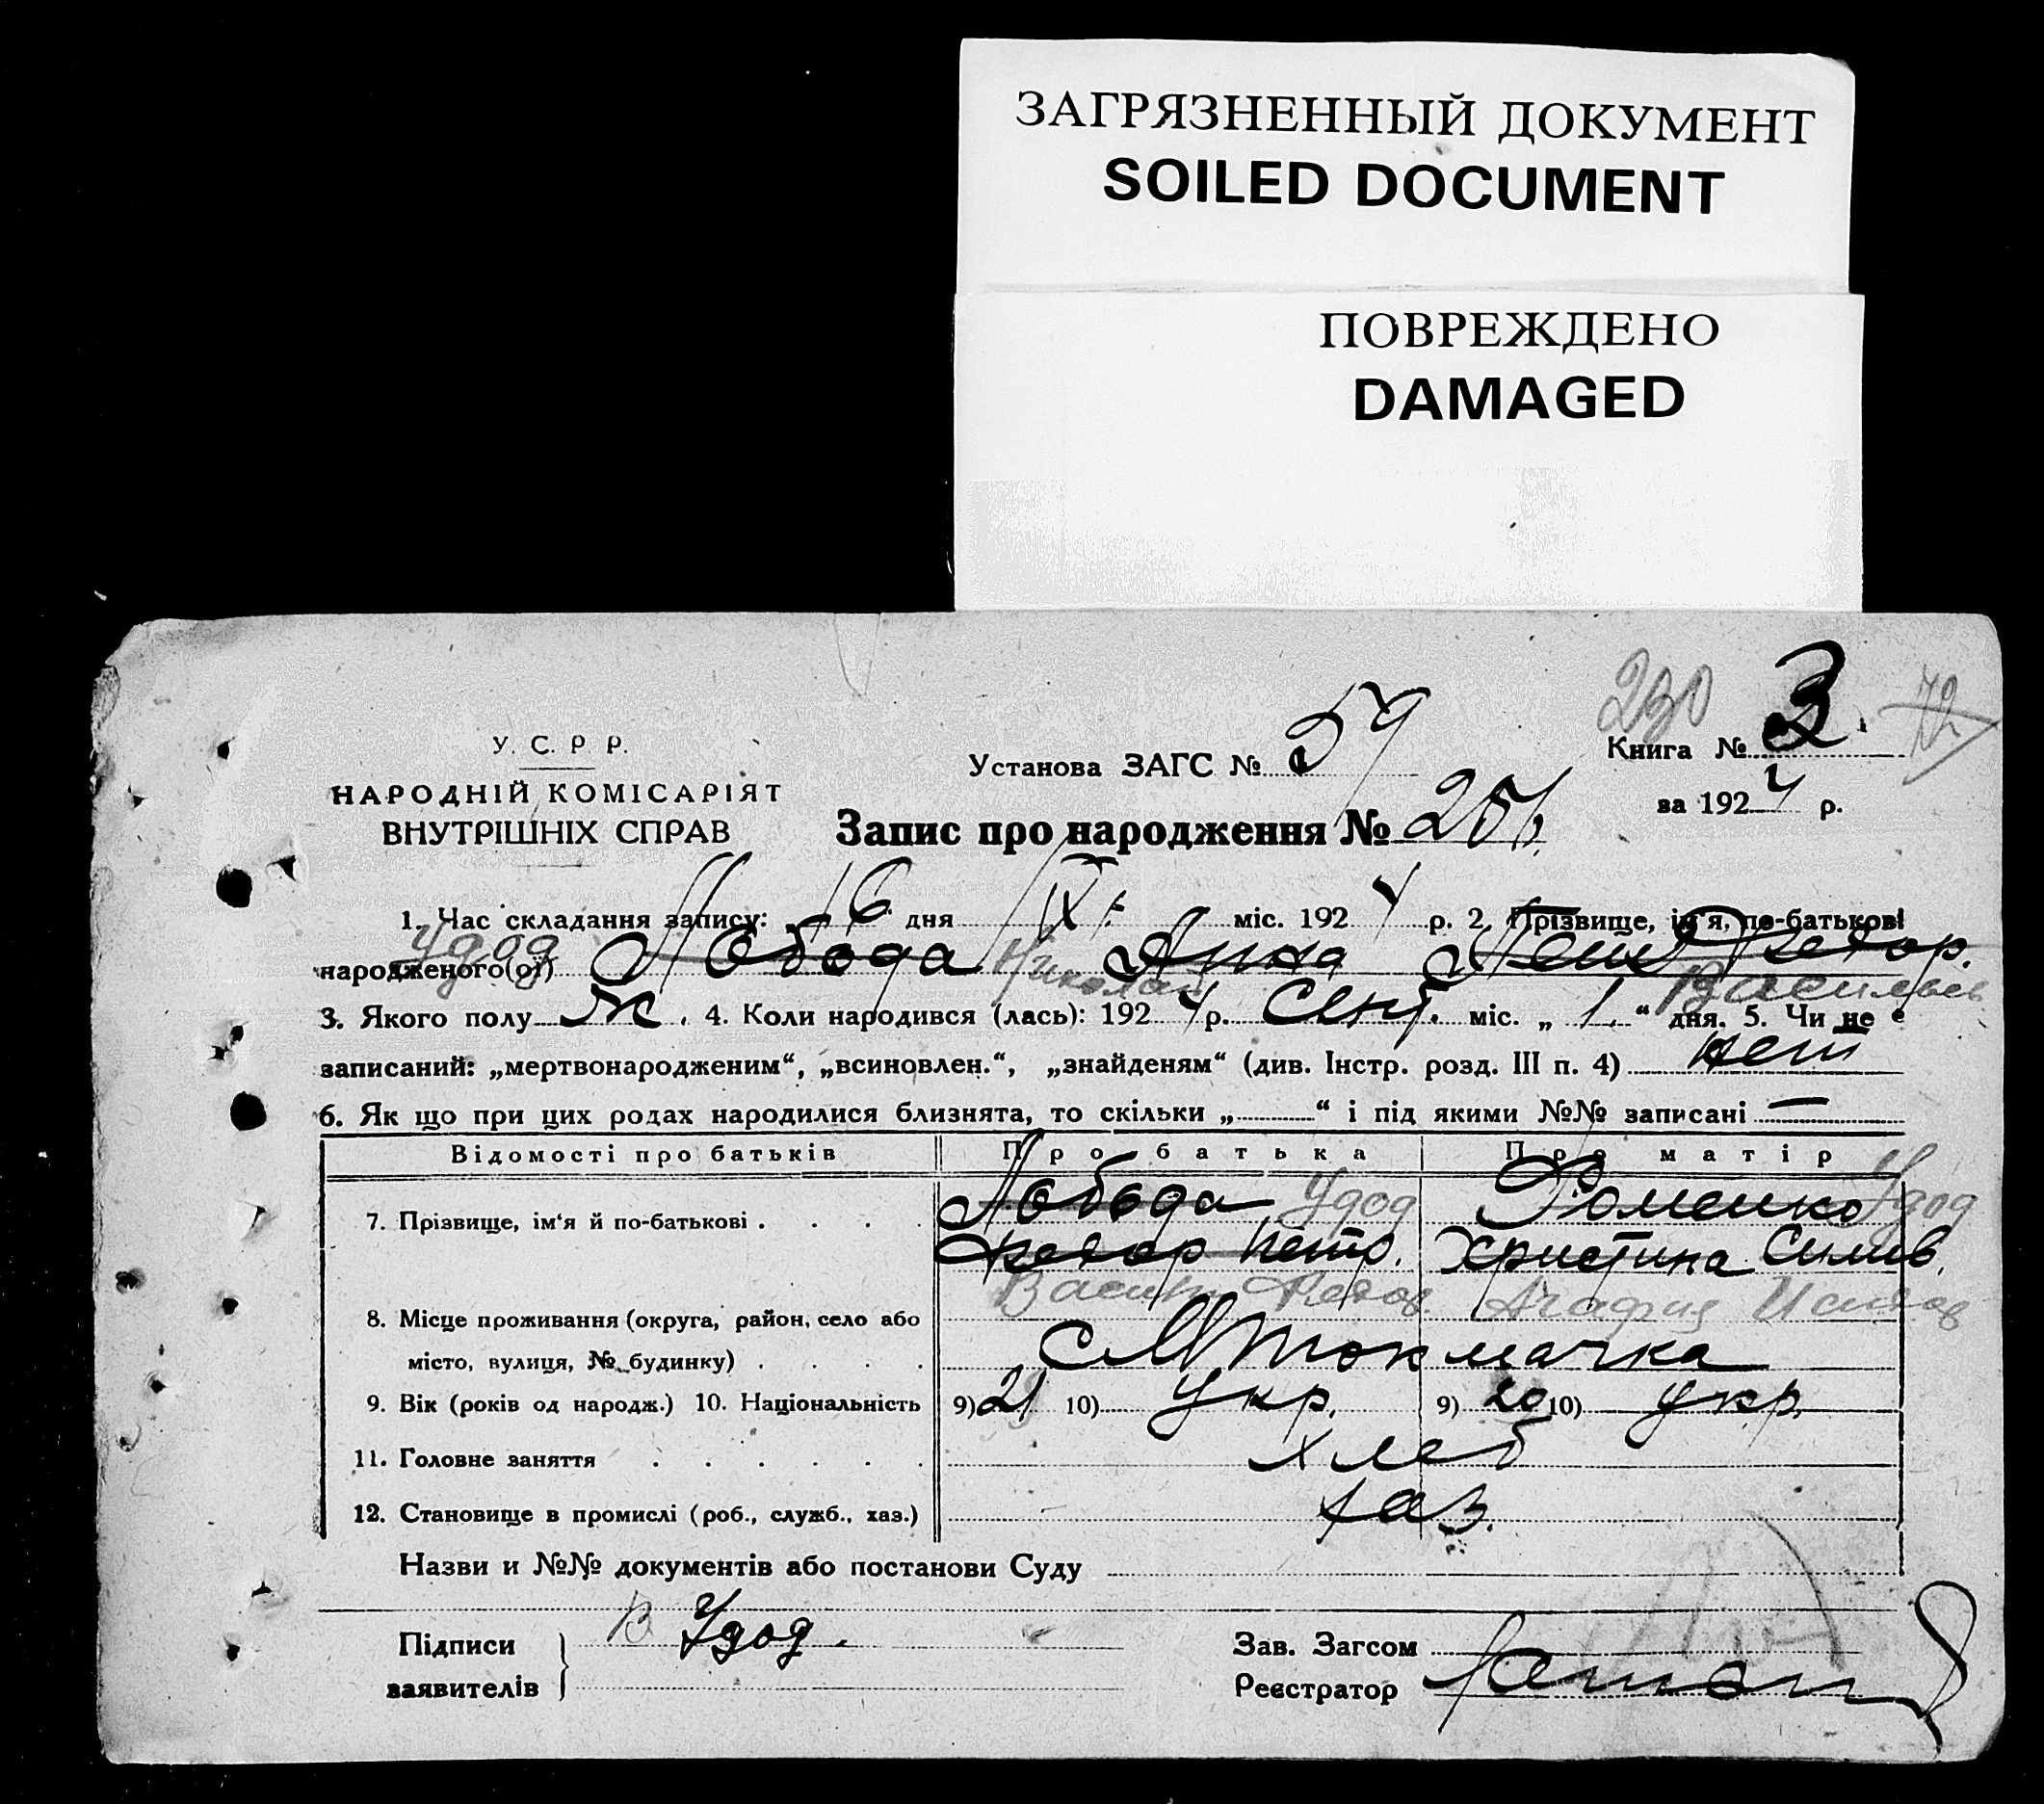 ЗАГРЯЗНЕННЫЙ ДОКУМЕНТ
SOILED DOCUMENT
ПОВРЕЖДЕНО
DAMAGED
230 3. 72
У. С. Р. Р.
Установа ЗАГС № 59
Книга №
НАРОДНІЙ КОМІСАРІЯТ
за 1924 р.
ВНУТРІШНІХ СПРАВ
Запис про народження № 256.
1. Час складання запису: 16 дня IX міс. 1924 р. 2. Прізвище, ім'я, по-батькові
Удод
народженого(ої) Лобода Анна Федор.
Николай Васильев
3. Якого полу Ж. 4. Коли народився (лась): 1924 р. Сент. міс. „ 1. “ дня. 5. Чи не є
записаний: „мертвонародженим“, „всиновлен.“, „знайденям“ (див. Інстр. розд. III п. 4) нет
6. Як що при цих родах народилися близнята, то скільки „ “ і під якими №№ записані —
Відомості про батьків Про батька Про матір
Лобода Удод Фоменко Удод
7. Прізвище, ім'я й по-батькові . . . .
Федор Петр. Христина
Васил Федор. Агафия
8. Місце проживання (округа, район, село або
місто, вулиця, № будинку) . . . . С М Токмачка
9. Вік (років од народж.) 10. Національність 9) 21 10) Укр. 9) 20 10) Укр.
11. Головне заняття . . . . . . Хлеб
12. Становище в промислі (роб., служб., хаз.) хаз.
Назви и №№ документів або постанови Суду
Підписи В Удод. Зав. Загсом
заявителів Реєстратор